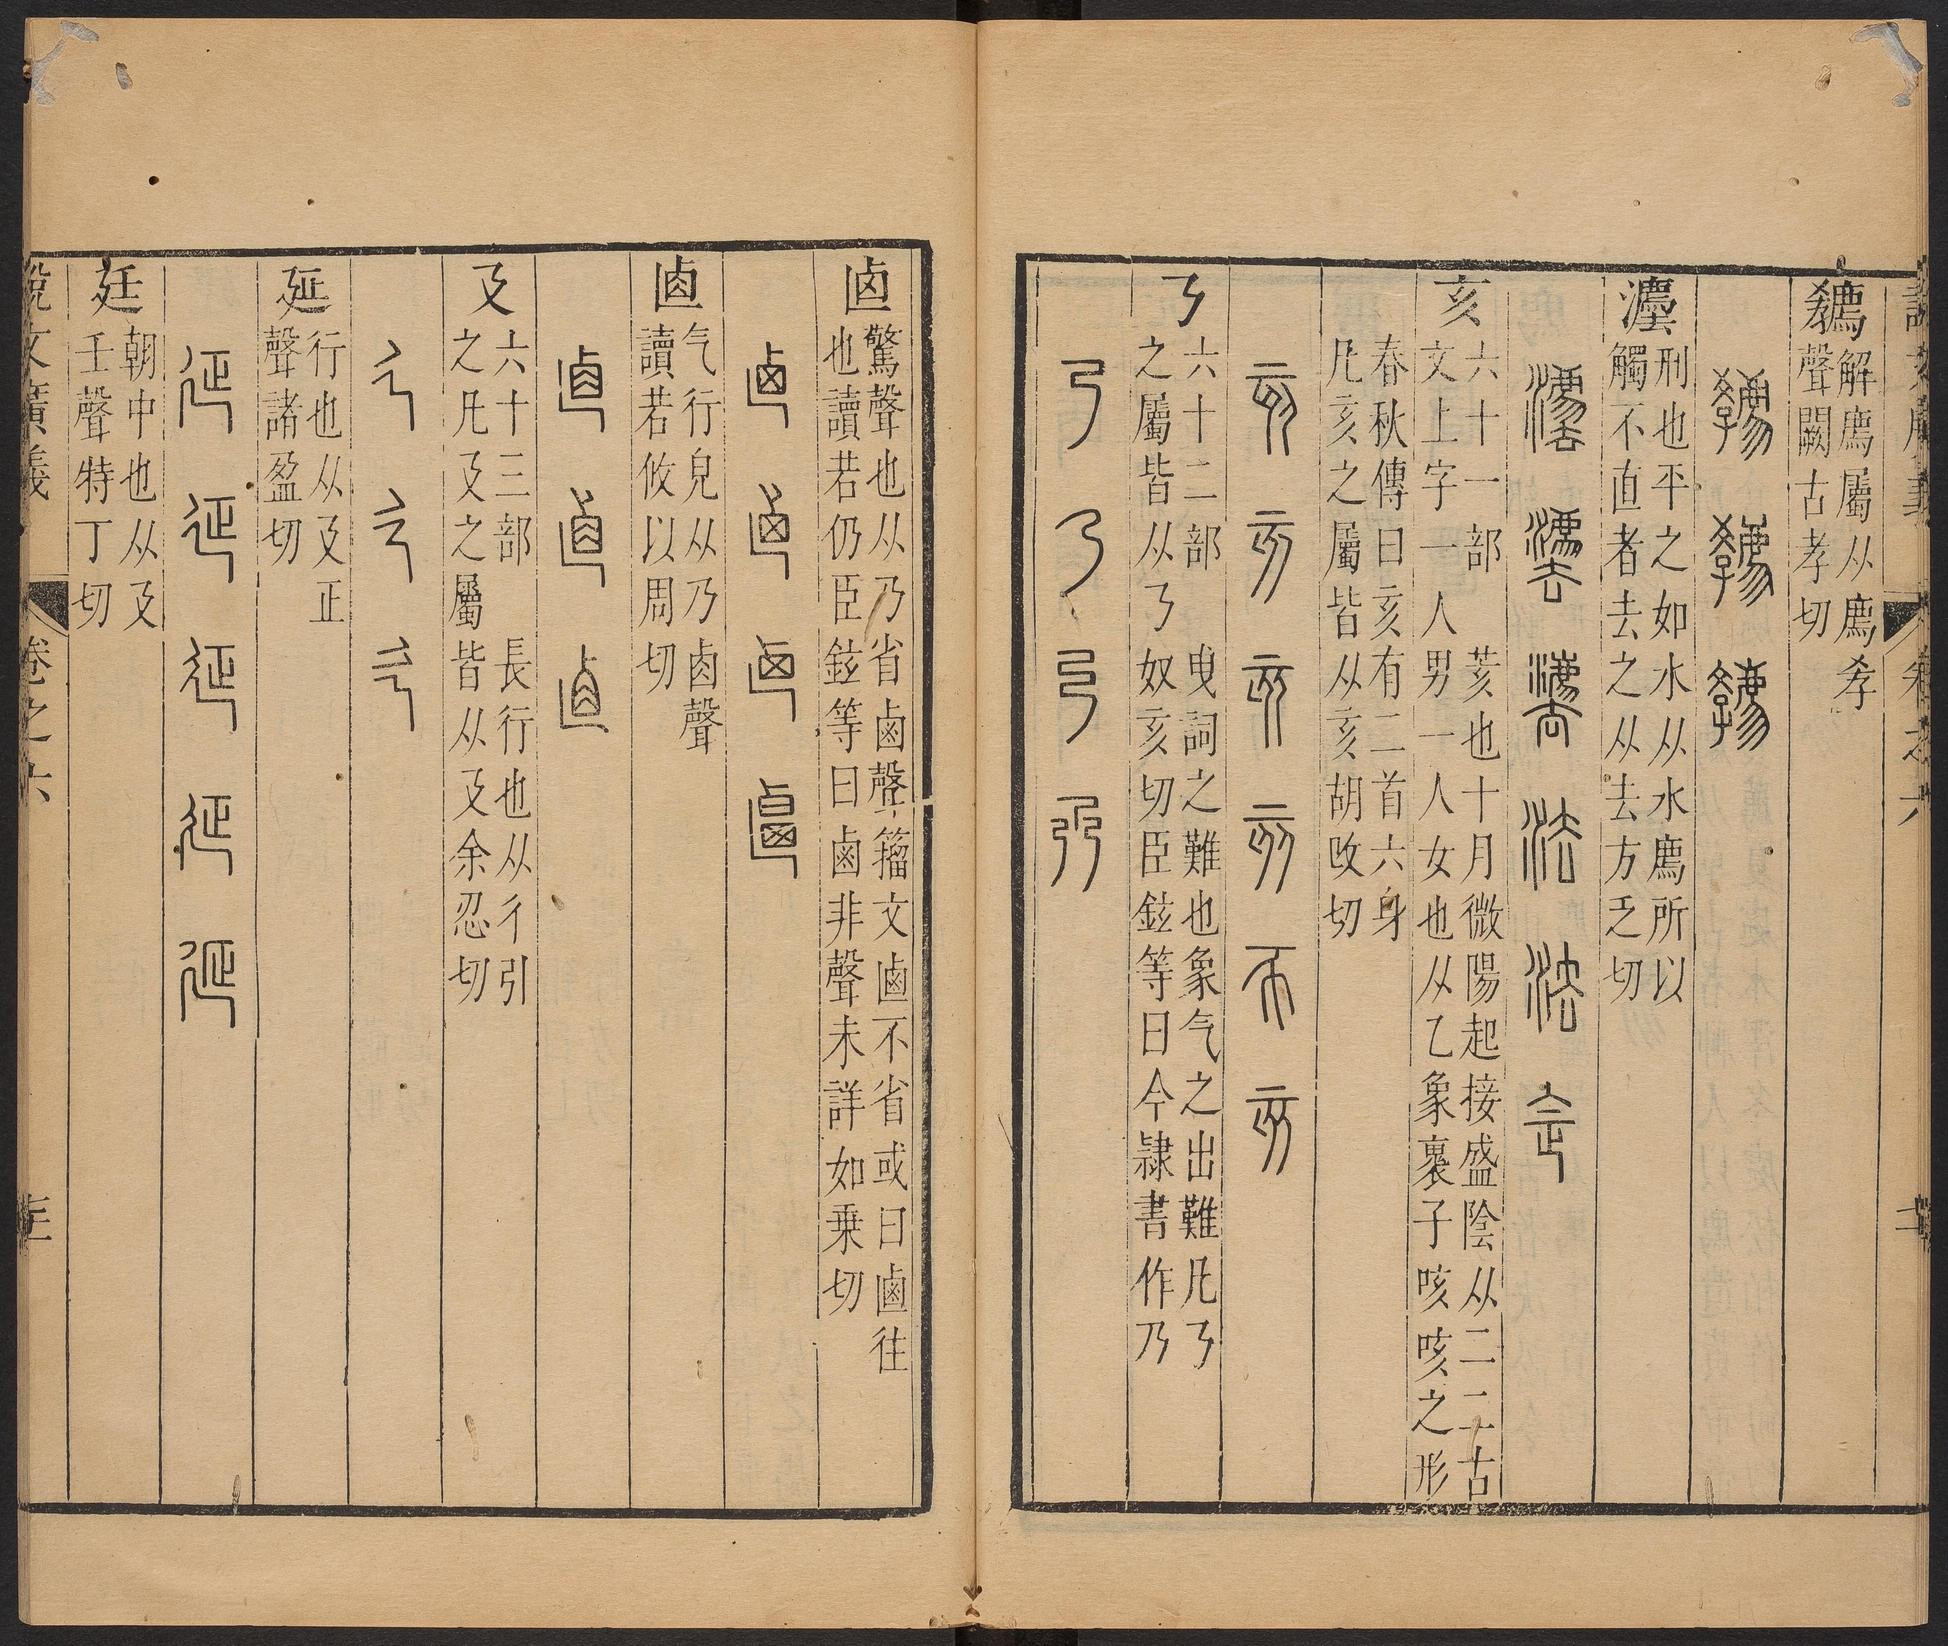 解廌屬从廌孝
聲闕古孝切
灋
刑也平之如水从水廌所以
觸不直者去之从去方乏切
亥
六十一部 荄也十月微陽起接盛陰从二二古
文上字一人男一人女也从乙象褢子咳咳之形
春秋傳曰亥有二首六身
凡亥之屬皆从亥胡改切
𠄎
六十二部 曳詞之難也象气之出難凡𠄎
之屬皆从𠄎奴亥切臣鉉等曰今隷書作乃
驚聲也从乃省鹵聲籀文鹵不省或曰鹵往
也讀若仍臣鉉等曰鹵非聲未詳如乗切
气行皃从乃卤聲
讀若攸以周切
廴
六十三部 長行也从彳引
之凡廴之屬皆从廴余忍切
㢟
行也从廴正
聲諸盈切
廷
朝中也从廴
𡈼聲特丁切
說文廣義 卷之六